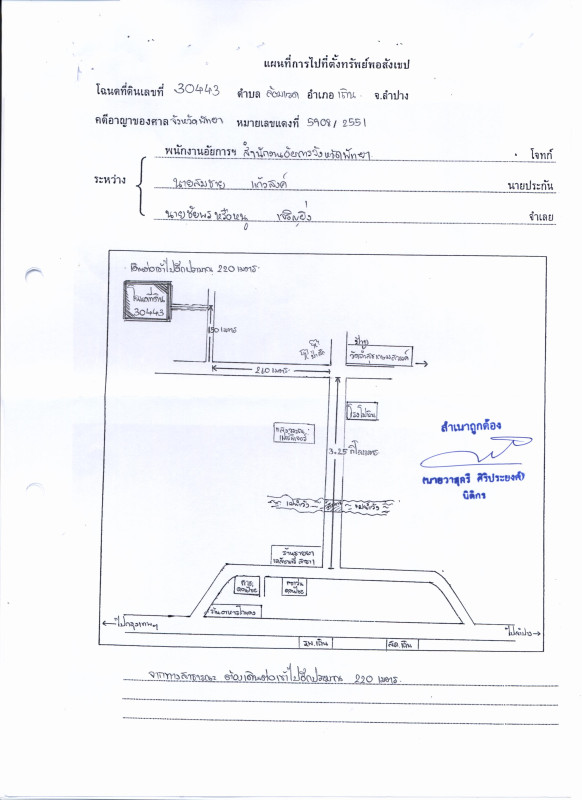 แผนที่การไปที่ตั้งทรัพย์พอสังเขป
โฉนดที่ดินเลขที่ 30443 ตำบล ล้อมแรด อำเภอ เถิน จ.ลำปาง
คดีอาญาของศาล จังหวัดพัทยา หมายเลขแดงที่ 5908/2551
พนักงานอัยการฯ สำนักงานอัยการจังหวัดพัทยา โจทก์
ระหว่าง นายสมชาย แก้วสงค์ นายประกัน
นายชัยพร หรือหนู จำเลย
เดินต่อเข้าไปอีกประมาณ 220 เมตร
โฉนดที่ดิน
30443
150 เมตร
210 เมตร
ป้าย
โรงโม่หิน
3.25 กิโลเมตร
แม่น้ำวัง
แม่น้ำวัง
สำเนาถูกต้อง
(นายวาสุตรี ศิริประยงค์)
นิติกร
ร้านขายยา
ไปกรุงเทพฯ
ไปลำปาง
รพ.เถิน
สภ.เถิน
จากทางสาธารณะ ต้องเดินต่อเข้าไปอีกประมาณ 220 เมตร